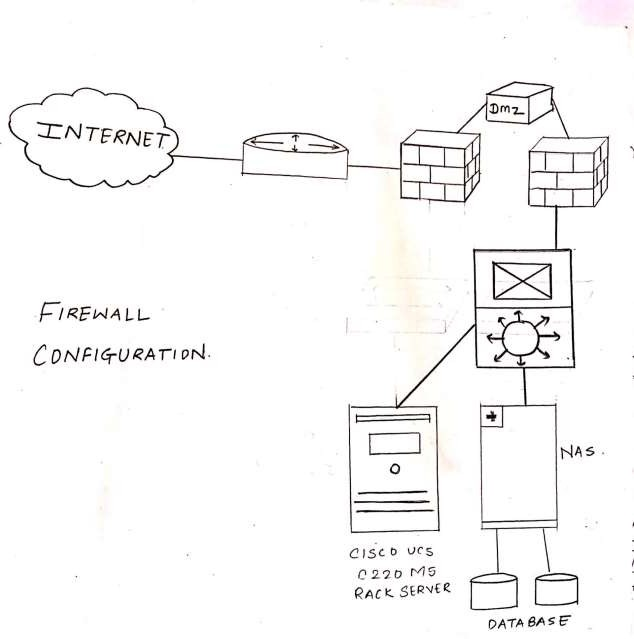 INTERNET
DMZ
FIREWALL
CONFIGURATION.
NAS.
CISCO UCS
C220 M5
RACK SERVER
DATABASE